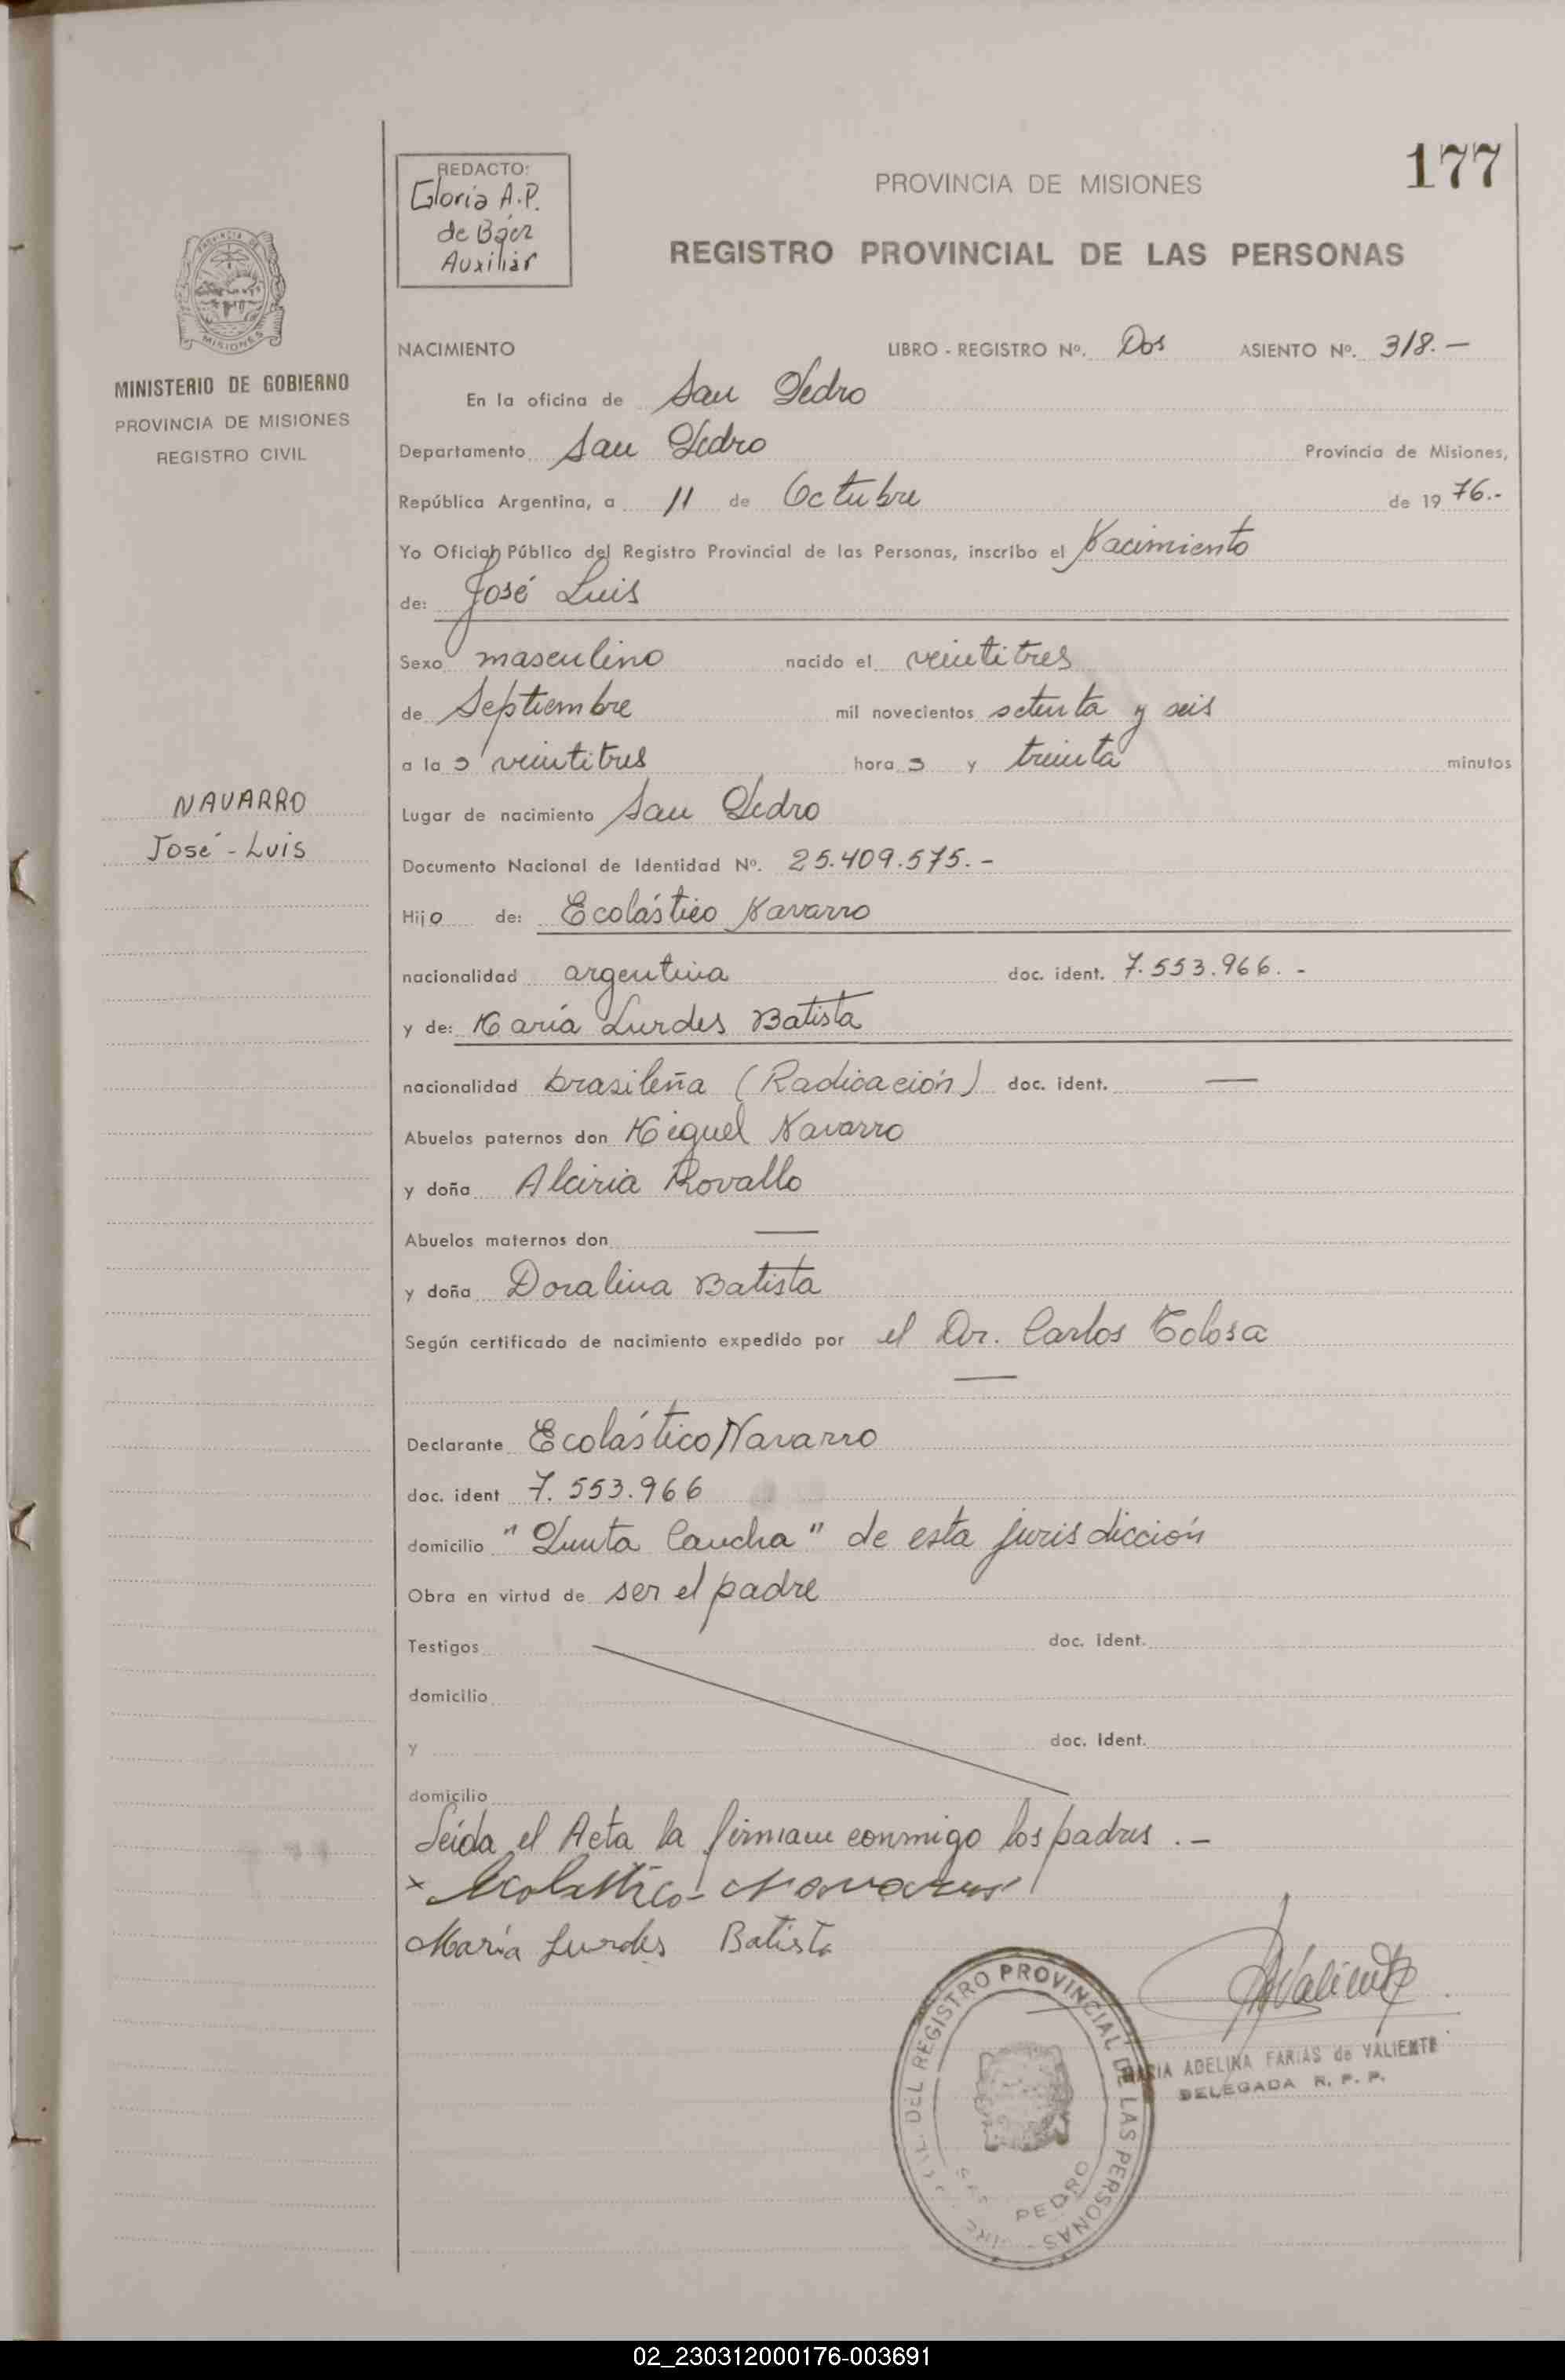 177
REDACTO:
Gloria A.P.
de Báez
Auxiliar
PROVINCIA DE MISIONES
REGISTRO PROVINCIAL DE LAS PERSONAS
MISIONES
MINISTERIO DE GOBIERNO
PROVINCIA DE MISIONES
REGISTRO CIVIL
NAVARRO
José - Luis
NACIMIENTO LIBRO - REGISTRO Nº. Dos ASIENTO Nº. 318.-
En la oficina de San Pedro
Departamento San Pedro Provincia de Misiones,
República Argentina, a 11 de Octubre de 1976.-
Yo Oficial Público del Registro Provincial de las Personas, inscribo el Nacimiento
de: José Luis
Sexo masculino nacido el veintitres
de Septiembre mil novecientos setenta y seis
a las veintitres horas y treinta minutos
Lugar de nacimiento San Pedro
Documento Nacional de Identidad Nº. 25.409.575.-
Hijo de: Ecolástico Navarro
nacionalidad argentina doc. ident. 7.553.966.-
y de: María Lurdes Batista
nacionalidad brasileña (Radicación) doc. ident. —
Abuelos paternos don Miguel Navarro
y doña Alciria Rovallo
Abuelos maternos don —
y doña Doralina Batista
Según certificado de nacimiento expedido por el Dr. Carlos Tolosa
—
Declarante Ecolástico Navarro
doc. ident 7.553.966
domicilio "Punta Cancha" de esta jurisdicción
Obra en virtud de ser el padre
Testigos doc. ident.
domicilio
y doc. ident.
domicilio
Leída el Acta la firman conmigo los padres .-
x Ecolastico Navarro
María Lurdes Batista
AValiente
MARIA ADELINA FARIAS de VALIENTE
DELEGADA R. P. P.
DEL REGISTRO PROVINCIAL DE LAS PERSONAS
SAN PEDRO
02_230312000176-003691